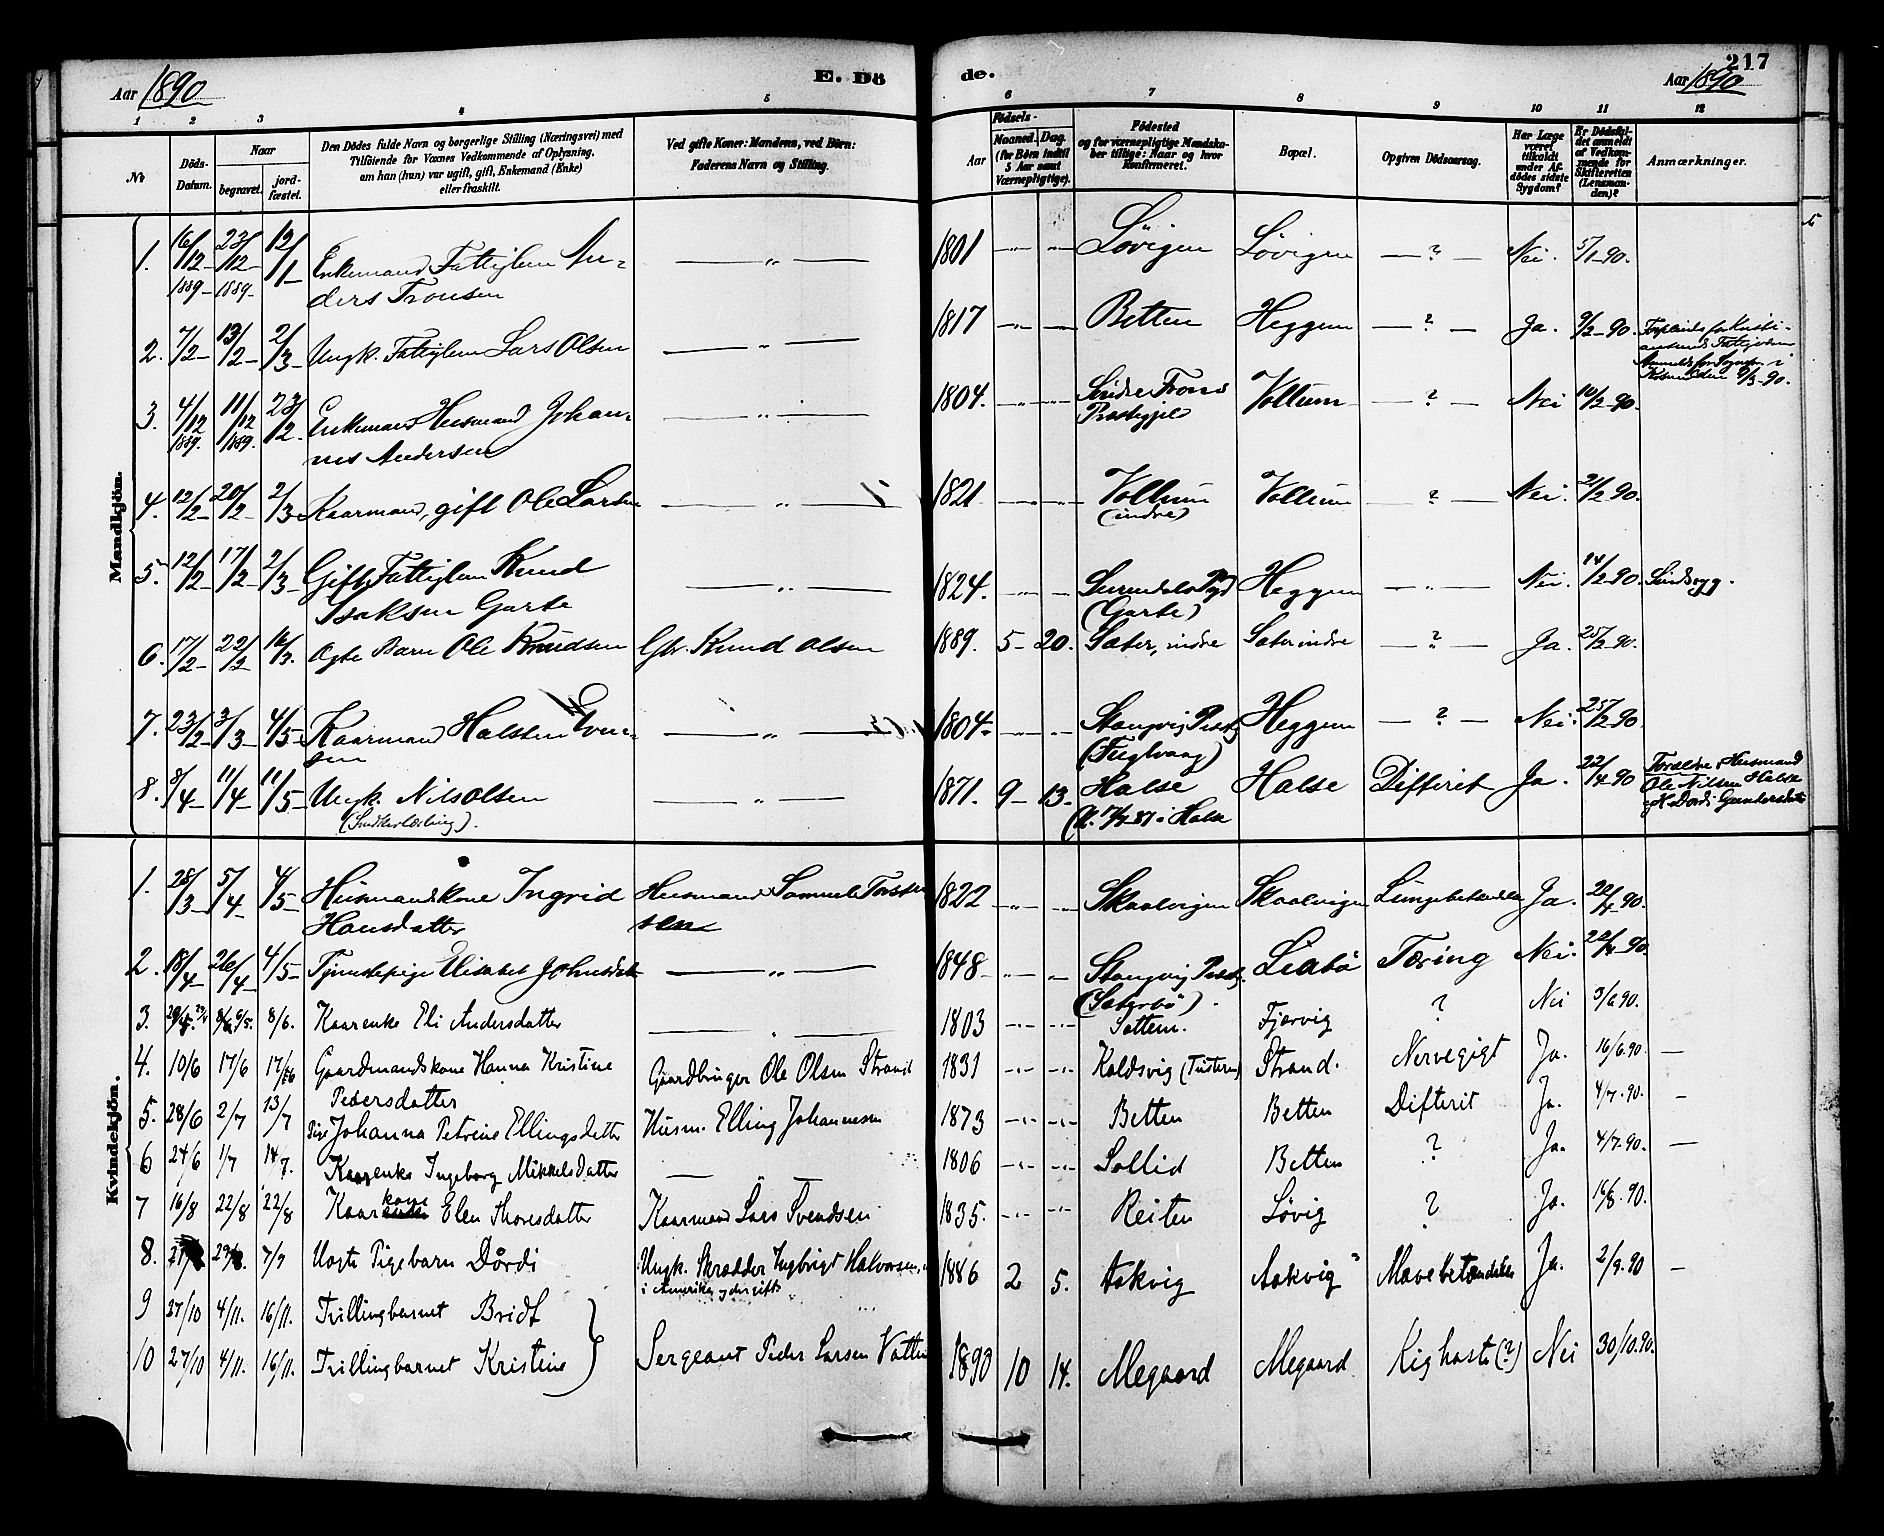 Aar 1890
E. Dö
de.
217
Aar 1890
1 2 3 4 5 6 7 8 9 10 11 12
№
Döds-Datum.
Naar
begravet.
jord-fæstet.
Den Dödes fulde Navn og borgerlige Stilling (Næringsvei) med
Tilföiende for Voxnes Vedkommende af Oplysning,
om han (hun) var ugift, gift, Enkemand (Enke)
eller fraskilt.
Ved gifte Koner: Mandens, ved Börn:
Faderens Navn og Stilling.
Födsels-
Aar
Maaned. Dag.
(for Börn indtil
5 Aar samt
Værnepligtige).
Födested
og for værnepligtige Mandska-
ber tillige: Naar og hvor
Konfirmeret.
Bopæl.
Opgiven Dödsaarsag.
Har Læge
været
tilkaldt
under Af-
dödes sidste
Sygdom?
Er Dödsfal-
det anmeldt
af Vedkom-
mende for
Skifteretten
(Lensman-
den)?
Anmærkninger.
Mandkjön.
1. 16/12 1889 23/12 1889 12/1 Enkemand Fattiglem An-
ders Tronsen — „ — 1801 Lövigen Lövigen — ? — Nei. 5/1 90.
2. 7/2 13/2 2/3 Ungk. Fattiglem Lars Olsen — „ — 1817 Betten Heggem — ? — Ja. 9/2 90.
3. 4/12 1889. 11/12 1889. 23/2 Enkemand Husmand Johan-
nes Andersen — „ — 1804. Söndre Fron's
Præstegjeld Vollum — ? — Nei 10/2 90.
4. 12/2 20/2 2/3 Kaarmand, gift Ole Larsen — „ — 1821 Vollum
(indre) Vollum — ? — Nei. 21/2 90.
5. 12/2 17/2 2/3 Gift Fattiglem Knud
Isaksen Garte — „ — 1824. Surendals Pgd
(Garte) Heggem — „ — Nei. 14/2 90. Sindssyg.
6. 17/2 22/2 16/3. Ægte Barn Ole Knudsen Gbr. Knud Olsen 1889. 5 20. Sæter, indre Sæter indre — ? — Ja. 25/2 90.
7. 23/2 3/3 4/5 Kaarmand Halsten Even-
sen — „ — 1804. Stangvig Præstg.
(Fuglvaag) Heggem — ? — Nei. 25/2 90.
8. 8/4 11/4 11/5 Ungk. Nils Olsen
(Snedkerlærling). — „ — 1871. 9 13. Halse Halse Difterit Ja. 22/4 90 Forældre: Husmand
Ole Nilsen Halse
og H. Dordi Gundersdtr
Kvindekjön.
1. 28/3 5/4 4/5 Husmandskone Ingrid
Hansdatter Husmand Samuel Torsten
sen 1822 Skaalvigen Skaalvigen Lungebetændelse Ja. 20/4 90.
2. 18/4 26/4 4/5 Tjenestepige Elisabet Johnsdat — „ — 1848 Stangvig Præstg.
(Sæterbö). Liabö Tæring Nei. 22/4 90.
3. 8/6. Kaarenke Eli Andersdatter — „ — 1803 Settem. Fjærvig ? Nei 3/6 90.
4. 10/6 17/6 17/6 Gaardmandskone Hanna Kristine
Pedersdatter Gaardbruger Ole Olsen Strand 1831 Koldsvig (Tusteren) Strand. Nervegigt Ja. 16/6 90. —
5. 28/6 2/7 13/7 Pige Johanna Petrine Ellingsdatter Husm. Elling Johannesen 1873 Betten Betten Difterit Ja. 4/7. 90. —
6 24/6 1/7 14/7. Kaarenke Ingeborg Mikkelsdatter — 1806 Sollid Betten ? Ja. 4/7. 90. —
7 16/8 22/8 22/8 Kaarkone Elen Thoresdatter Kaarmand Lars Svendsen 1835. Reiten Løvig ? Ja. 16/8. 90.
8. 7/9 Uægte Pigebarn Dårdi Ungk. Skrædder Ingbrigt Halvorsen,
i Amerika og der gift 1886 2 5. Aakvig Aakvig Mavebetændelse Ja. 2/9. 90 —
9 27/10 4/11. 16/11. Tvillingbarnet Bridt
10 27/10 4/11. 16/11. Tvillingbarnet Kristine Sergeant Peder Larsen Vatten 1890 10 14. Megaard Megaard Kighoste (?) Nei 30/10. 90.